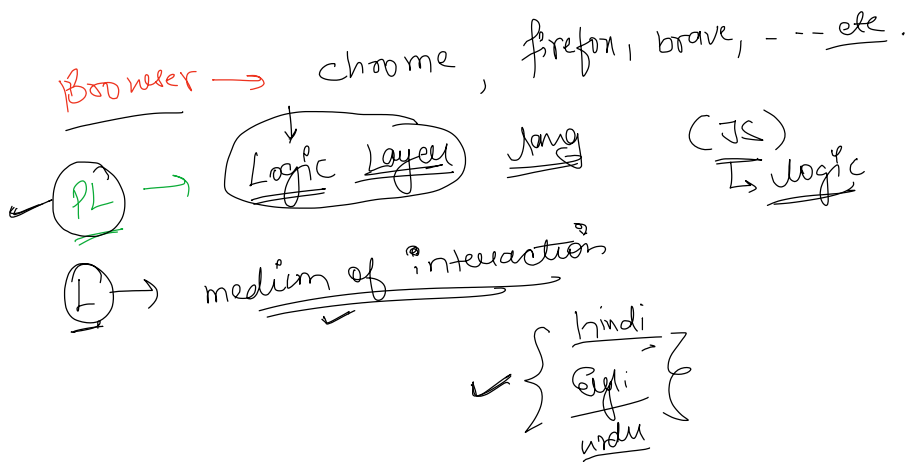 Browser → chrome, firefox, brave, ---- etc.
PL → Logic Layer lang (JS)
↳ logic
L → medium of interaction
hindi
Engli
urdu